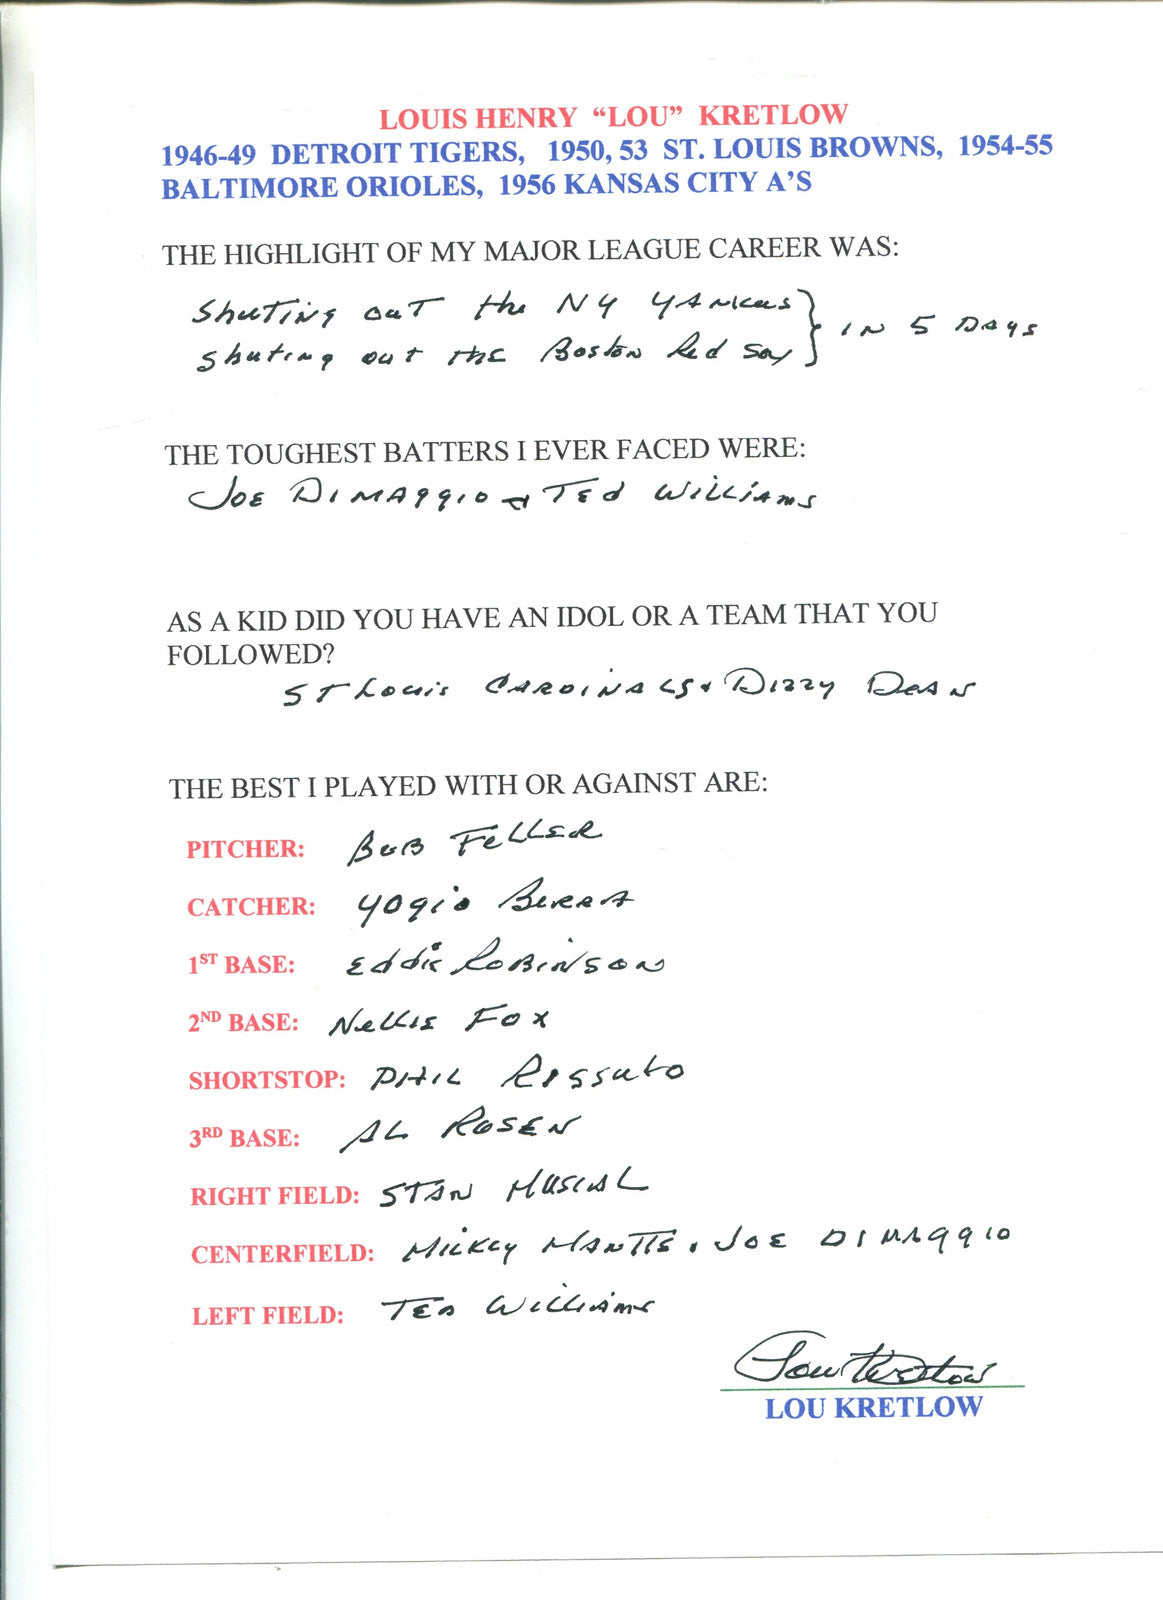 LOUIS HENRY “LOU” KRETLOW
1946-49 DETROIT TIGERS, 1950, 53 ST. LOUIS BROWNS, 1954-55
BALTIMORE ORIOLES, 1956 KANSAS CITY A’S
THE HIGHLIGHT OF MY MAJOR LEAGUE CAREER WAS:
Shuting out the NY YANKees } IN 5 DAYS
Shuting out the Boston Red Sox
THE TOUGHEST BATTERS I EVER FACED WERE:
JOE DIMAGGIO + TED WILLIAMS
AS A KID DID YOU HAVE AN IDOL OR A TEAM THAT YOU
FOLLOWED?
ST Louis CARDINALS + DIZZY DEAN
THE BEST I PLAYED WITH OR AGAINST ARE:
PITCHER: BOB FeLLER
CATCHER: YOGI BERRA
1ST BASE: Eddie ROBINSON
2ND BASE: NeLLIE FOX
SHORTSTOP: PHIL RISSUTO
3RD BASE: AL ROSEN
RIGHT FIELD: STAN MUSIAL
CENTERFIELD: MICKEY MANTLE, JOE DIMAGGIO
LEFT FIELD: TED WILLIAMS
Lou Kretlow
LOU KRETLOW